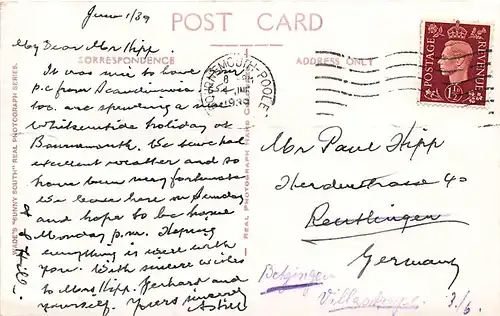 June 1/39
POST CARD
CORRESPONDENCE
ADDRESS ONLY
My Dear Mr Hipp.
It was nice to have your
p.c from Scandinavia
too. are spending a nice
Whitsuntide holiday at
Bournemouth. We have had
excellent weather and so
have been very fortunate
We leave here on Sunday
and hope to be home
Monday p.m. Hoping
everything is well with
you. With sincere wishes
to Mrs Hipp. Gerhard and
yourself. Yours sincerely
WADE'S "SUNNY SOUTH" REAL PHOTOGRAPH SERIES.
REAL PHOTOGRAPH HAND
BOURNEMOUTH-POOLE
8 PM
4 JNE
1939
POSTAGE
REVENUE
1½D
Mr Paul Hipp
Herderstrasse 40
Reutlingen
Germany
Betzingen
3/6.